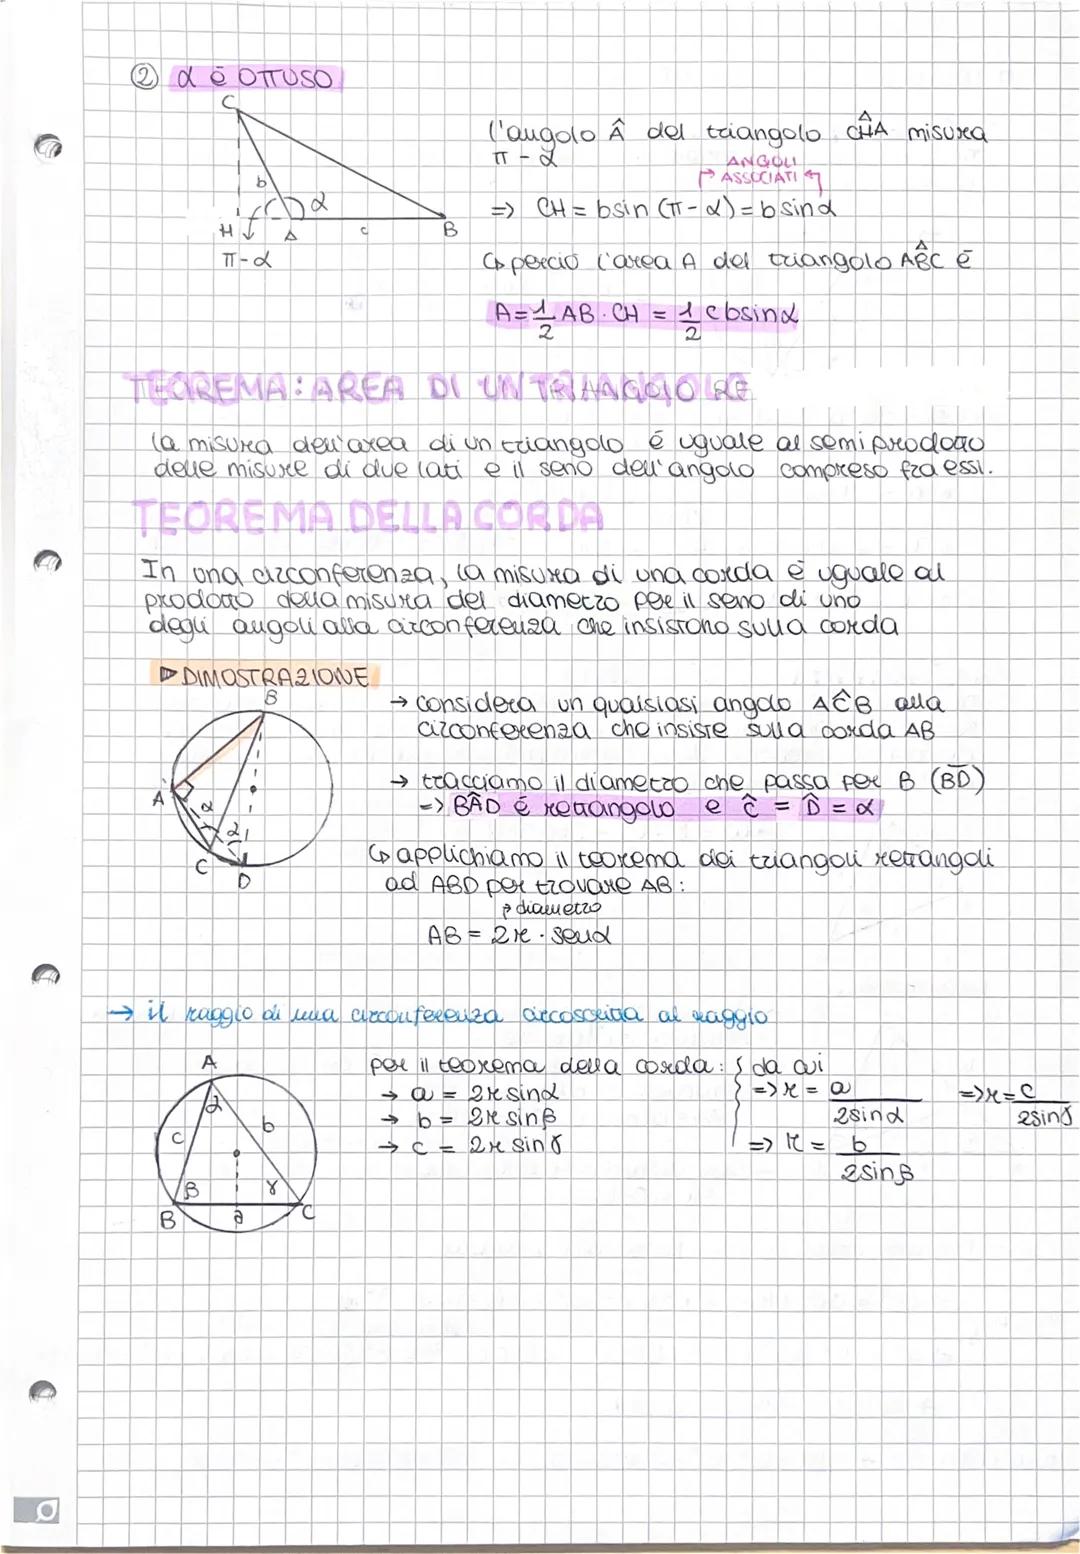 ② α è OTTUSO
C
l'angolo Â del triangolo CĤA misura
π - α
ANGOLI
ASSOCIATI
b
α
=> CH = bsin (π-α) = b sinα
H A c B
π-α
↳ perciò l'area A del triangolo AB̂C è
A = 1/2 AB · CH = 1/2 cbsinα
TEOREMA: AREA DI UN TRIANGOLO RE
la misura dell'area di un triangolo è uguale al semiprodotto
delle misure di due lati e il seno dell'angolo compreso fra essi.
TEOREMA DELLA CORDA
In una circonferenza, la misura di una corda è uguale al
prodotto della misura del diametro per il seno di uno
degli angoli alla circonferenza che insistono sulla corda
▷ DIMOSTRAZIONE
B
→ considera un qualsiasi angolo AĈB alla
circonferenza che insiste sulla corda AB
→ tracciamo il diametro che passa per B (BD)
A
=> BÂD è rettangolo e Ĉ = D̂ = α
α
α
C
D
↳ applichiamo il teorema dei triangoli rettangoli
ad ABD per trovare AB:
diametro
AB = 2r · senα
→ il raggio di una circonferenza circoscritta al raggio
A
per il teorema della corda: { da cui
→ a = 2r sinα
=> r = a/2sinα
=> r = c/2sinγ
→ b = 2r sinβ
→ c = 2r sinγ
=> r = b/2sinβ
α
c
b
β γ
B a C